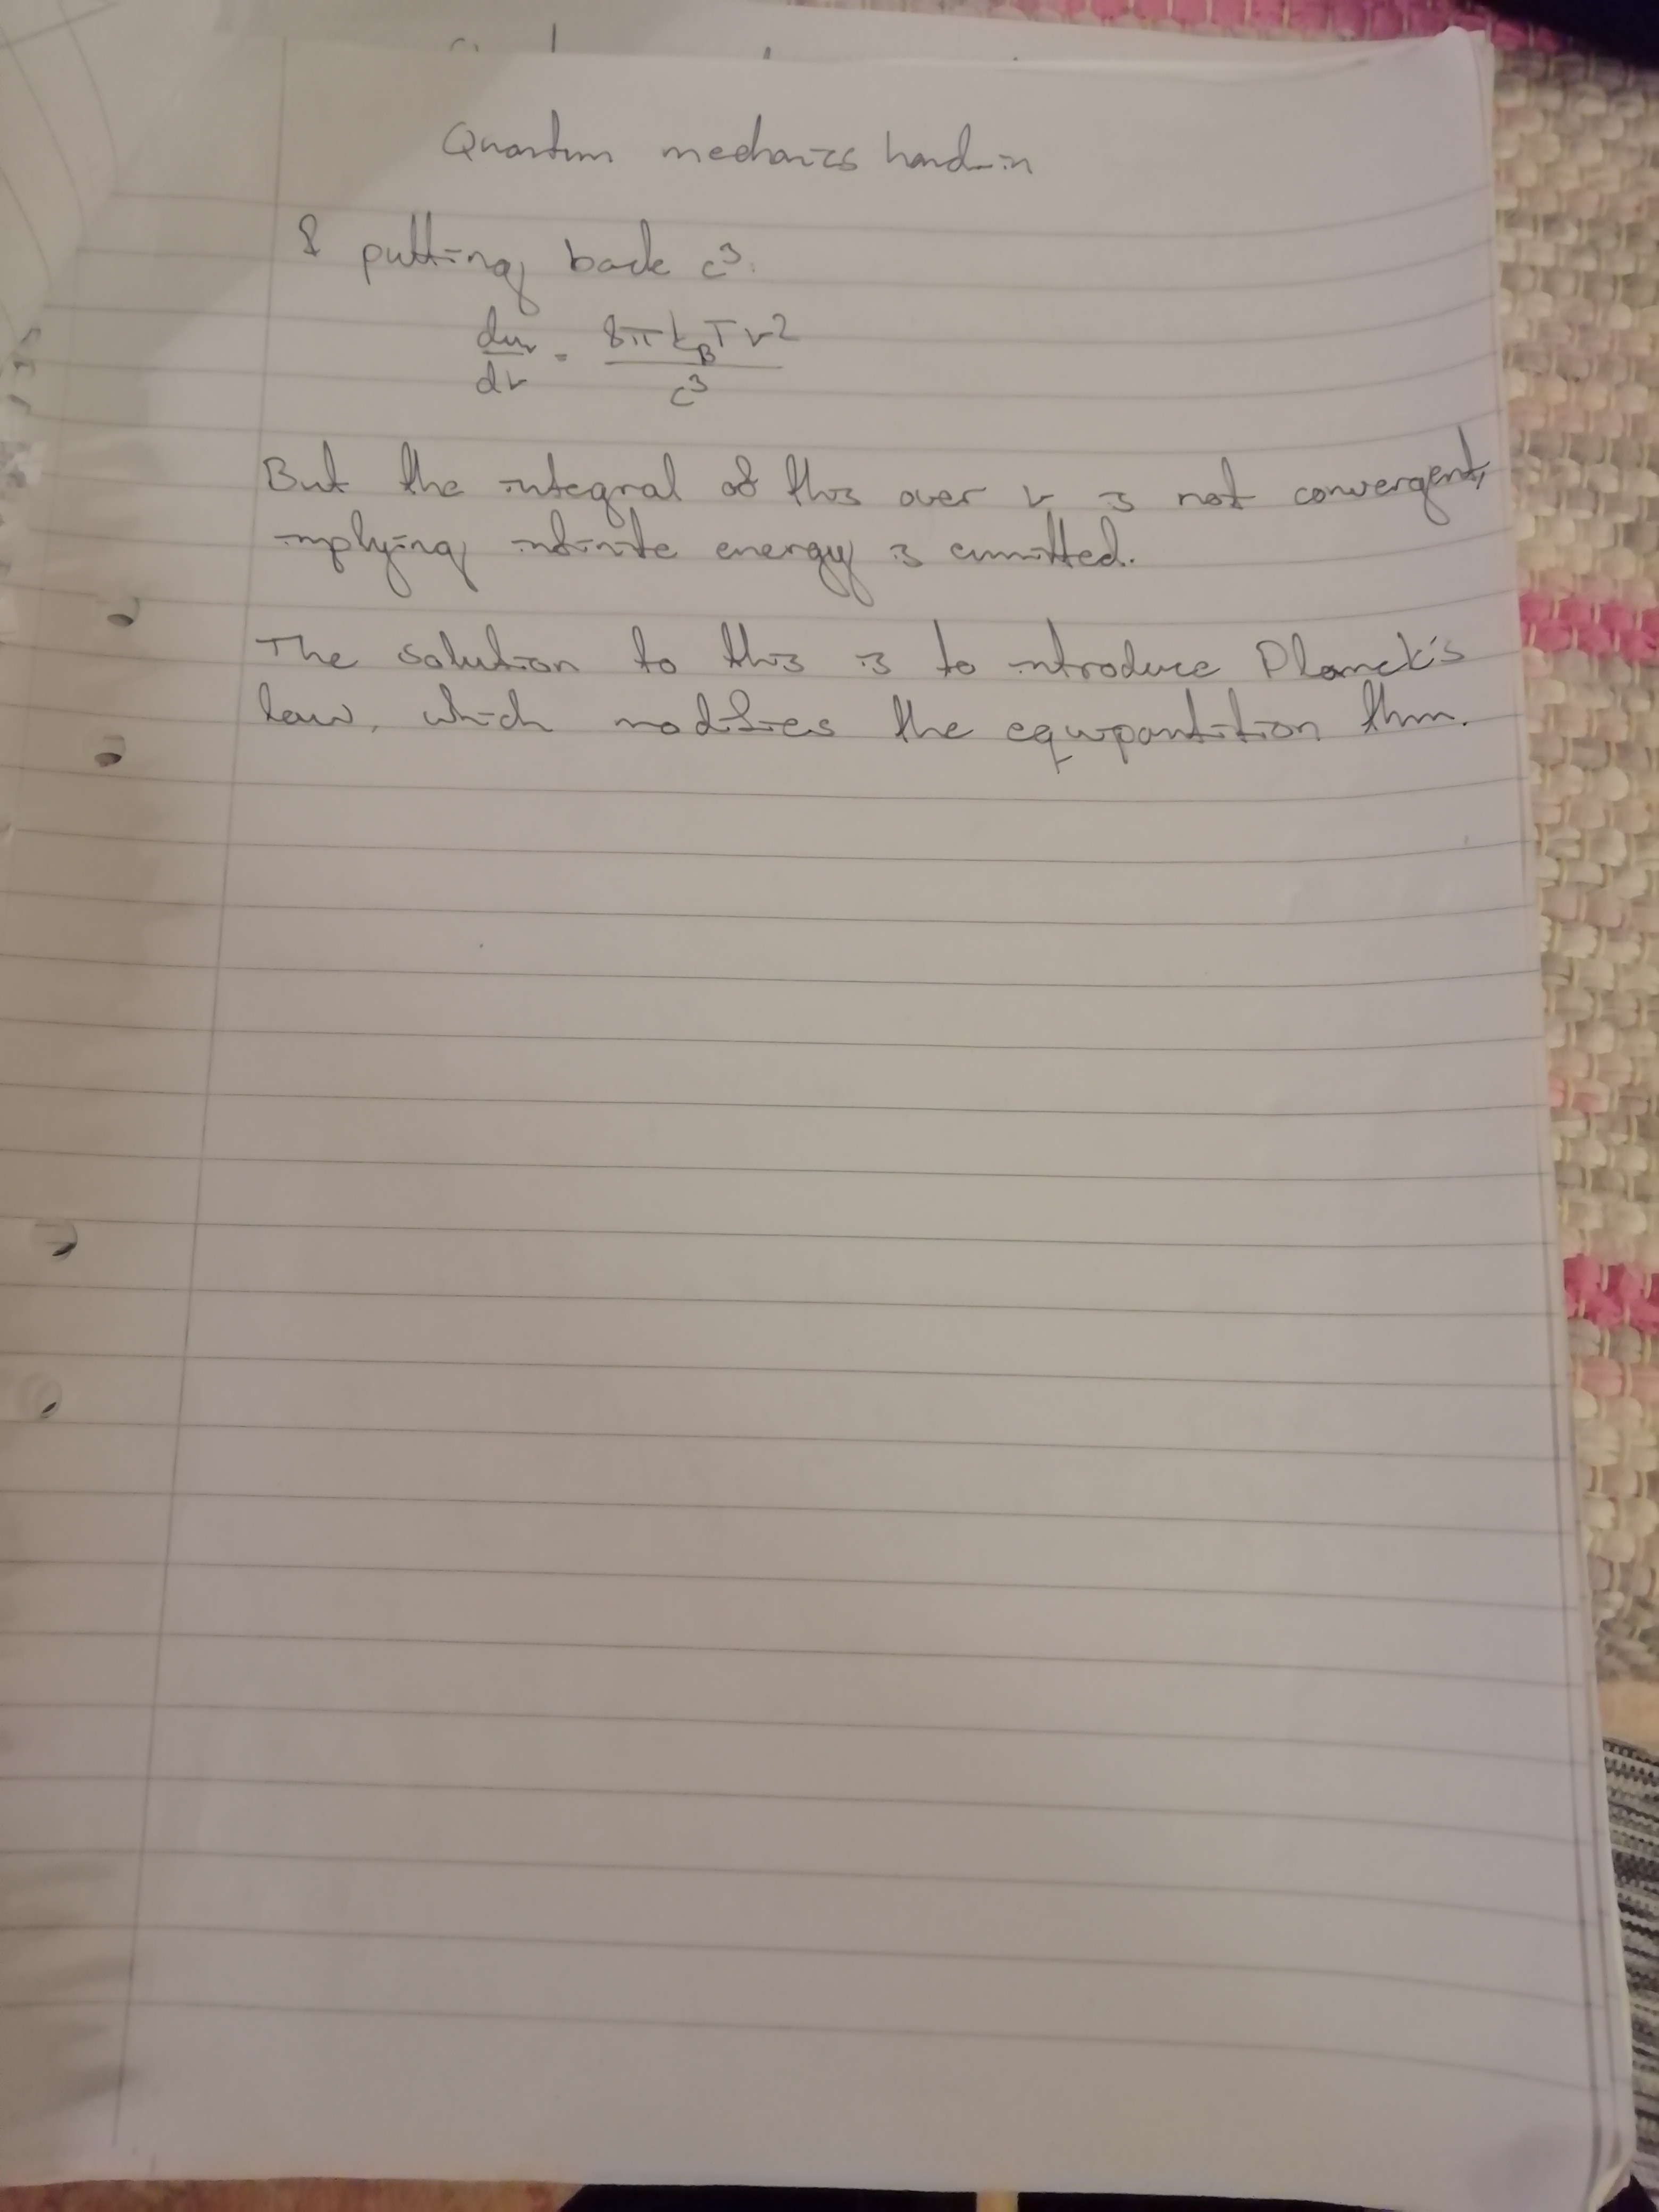 Quantum mechanics hand-in
& putting back c³.
du_ν/dν = 8πk_BTν²/c³
But the integral of this over ν is not convergent,
implying infinite energy is emmitted.
The solution to this is to introduce Planck's
law, which modifies the equipartition thm.